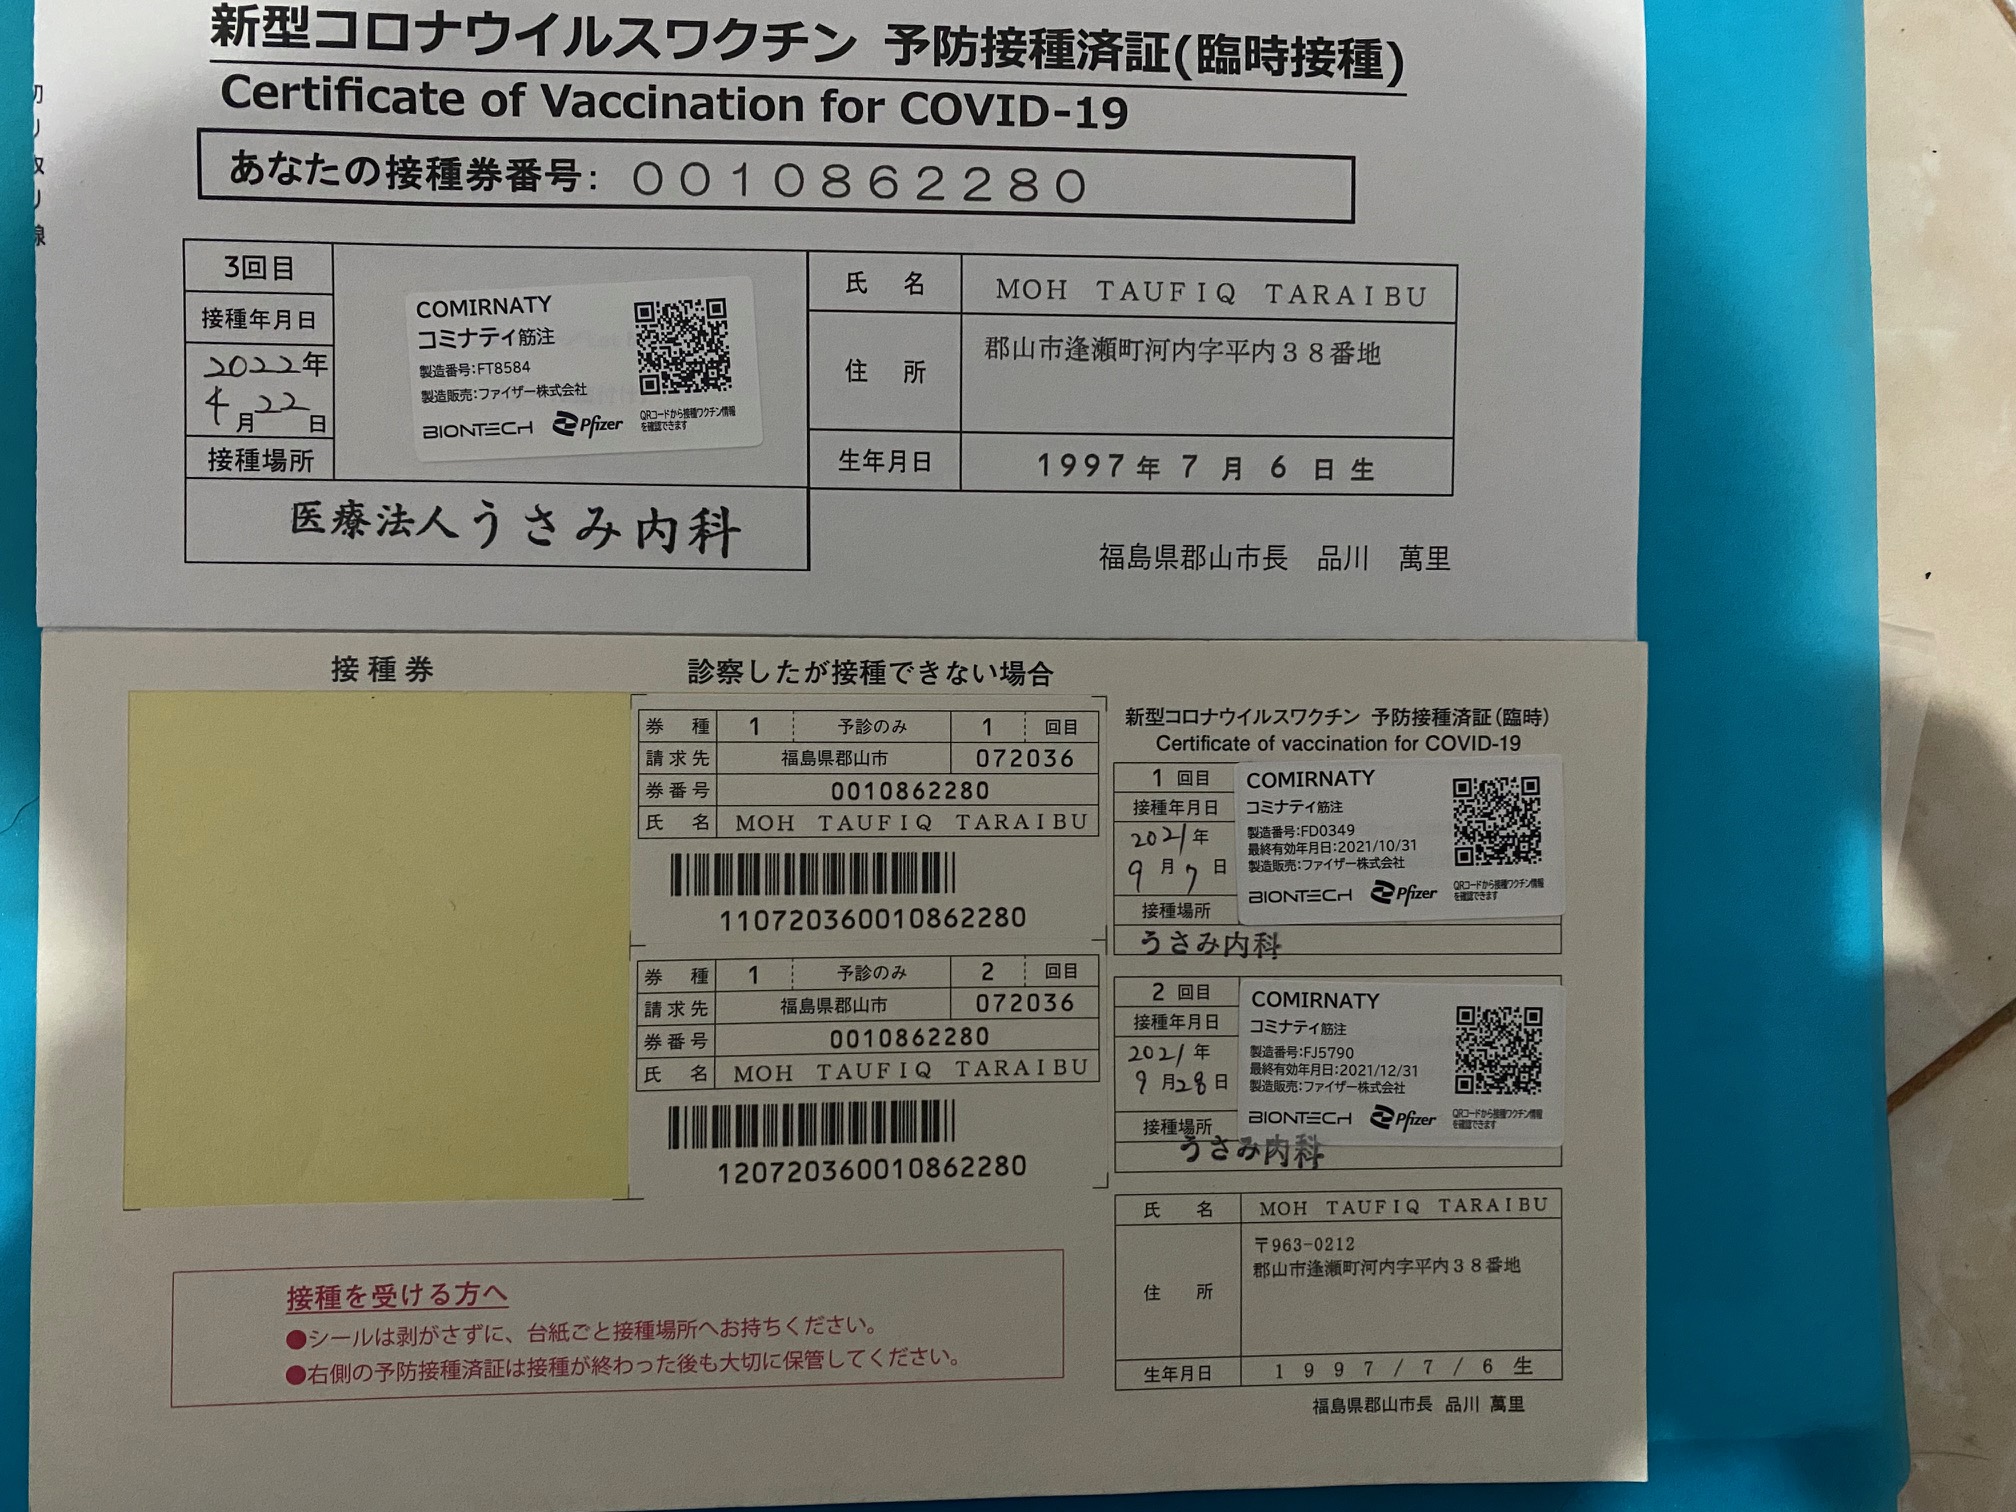 新型コロナウイルスワクチン 予防接種済証(臨時接種)
Certificate of Vaccination for COVID-19
あなたの接種券番号: 0010862280
3回目
接種年月日
2022年
4月22日
接種場所
医療法人うさみ内科
COMIRNATY
コミナティ筋注
製造番号:FT8584
製造販売:ファイザー株式会社
BIONTECH Pfizer
QRコードから接種ワクチン情報
を確認できます
氏 名 MOH TAUFIQ TARAIBU
住 所 郡山市逢瀬町河内字平内38番地
生年月日 1997年7月6日生
福島県郡山市長 品川 萬里
接種券
診察したが接種できない場合
券種 1 予診のみ 1 回目
請求先 福島県郡山市 072036
券番号 0010862280
氏 名 MOH TAUFIQ TARAIBU
110720360010862280
券種 1 予診のみ 2 回目
請求先 福島県郡山市 072036
券番号 0010862280
氏 名 MOH TAUFIQ TARAIBU
120720360010862280
接種を受ける方へ
●シールは剥がさずに、台紙ごと接種場所へお持ちください。
●右側の予防接種済証は接種が終わった後も大切に保管してください。
新型コロナウイルスワクチン 予防接種済証(臨時)
Certificate of vaccination for COVID-19
1回目
接種年月日
2021年
9月7日
接種場所
うさみ内科
COMIRNATY
コミナティ筋注
製造番号:FD0349
最終有効年月日:2021/10/31
製造販売:ファイザー株式会社
BIONTECH Pfizer
QRコードから接種ワクチン情報
を確認できます
2回目
接種年月日
2021年
9月28日
接種場所
うさみ内科
COMIRNATY
コミナティ筋注
製造番号:FJ5790
最終有効年月日:2021/12/31
製造販売:ファイザー株式会社
BIONTECH Pfizer
QRコードから接種ワクチン情報
を確認できます
氏 名 MOH TAUFIQ TARAIBU
住 所 〒963-0212
郡山市逢瀬町河内字平内38番地
生年月日 1997/7/6生
福島県郡山市長 品川 萬里